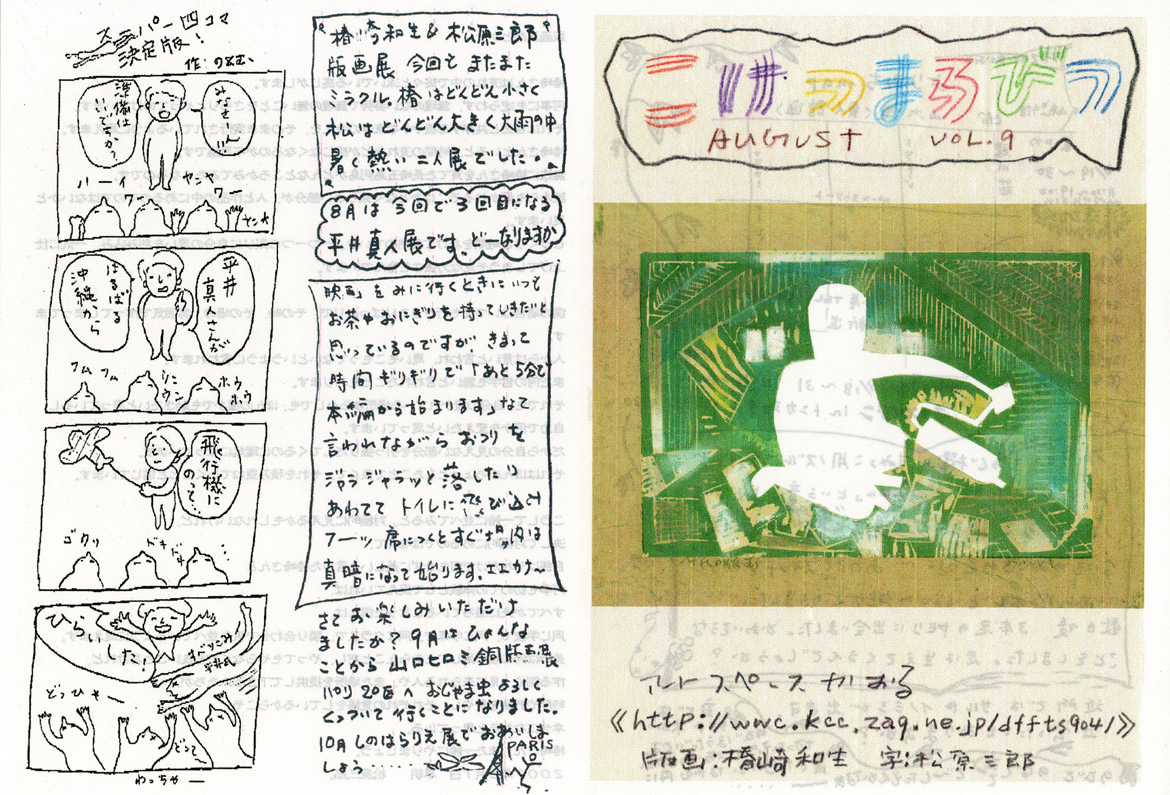 スーパー四コマ
決定版!
みなさーん!!
準備は
いいですか?
ハーイ
ヤンヤ
ワー
ワー
平井
真人さんが
はるばる
沖縄から
フム フム
ウン
ホウ
ホウ
飛行機に
のって…
ゴクリ
ドキドキ
ひら
した
どっひゃー
どて
わっちゃー
椿崎和生&松原三郎
版画展 今回もまたまた
ミラクル。椿はどんどん小さく
松はどんどん大きく大雨の中
暑く熱い二人展でした。
8月は今回で3回目になる
平井真人展です。どーなりますか
映画をみに行くときにいつも
お茶やおにぎりを持っていきたいと
思っているのですがきまって
時間ぎりぎりで「あと5分で
本編から始まります」なて
言われながらおつりを
ジャラジャラッと落したり
あわててトイレに飛び込み
フーッ 席につくとすぐ場内は
真暗になって始ります。
さてお楽しみいただけ
ましたか?9月はひょんな
ことから山口ヒロミ銅版画展
パリ20区へおじゃま虫よろしく
くっついて行くことになりました。
10月しのはらりえ展でおあいしま
しょう……
PARIS
ニげつまろびつ
AUGUST VOL.9
アートスペースかおる
《http://www.kcc.zaq.ne.jp/dffts904/》
版画:椿崎和生 字:松原三郎